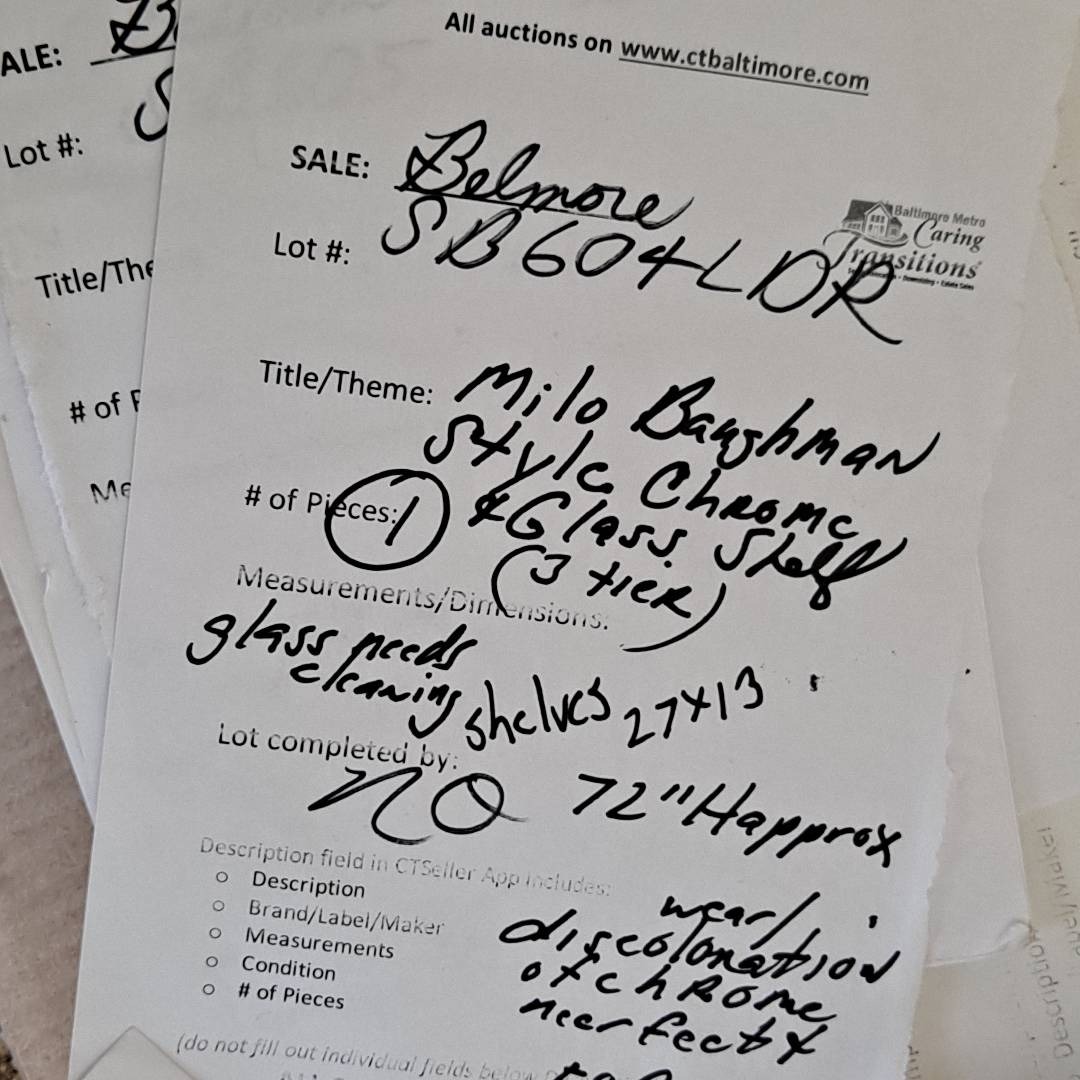 All auctions on www.ctbaltimore.com
SALE: Belmore
Lot #: SB604LDR
Baltimore Metro
Caring
Transitions
Title/Theme: Milo Baughman
Style Chrome
& Glass Shelf
(3 tier)
# of Pieces: 1
Measurements/Dimensions:
glass needs
cleaning shelves 27x13
72" H approx
Lot completed by:
NO
wear/
discoloration
of chrome
near feet &
Description field in CTSeller App includes:
o Description
o Brand/Label/Maker
o Measurements
o Condition
o # of Pieces
(do not fill out individual fields below
ALE:
Lot #:
Title/The
# of P
Me